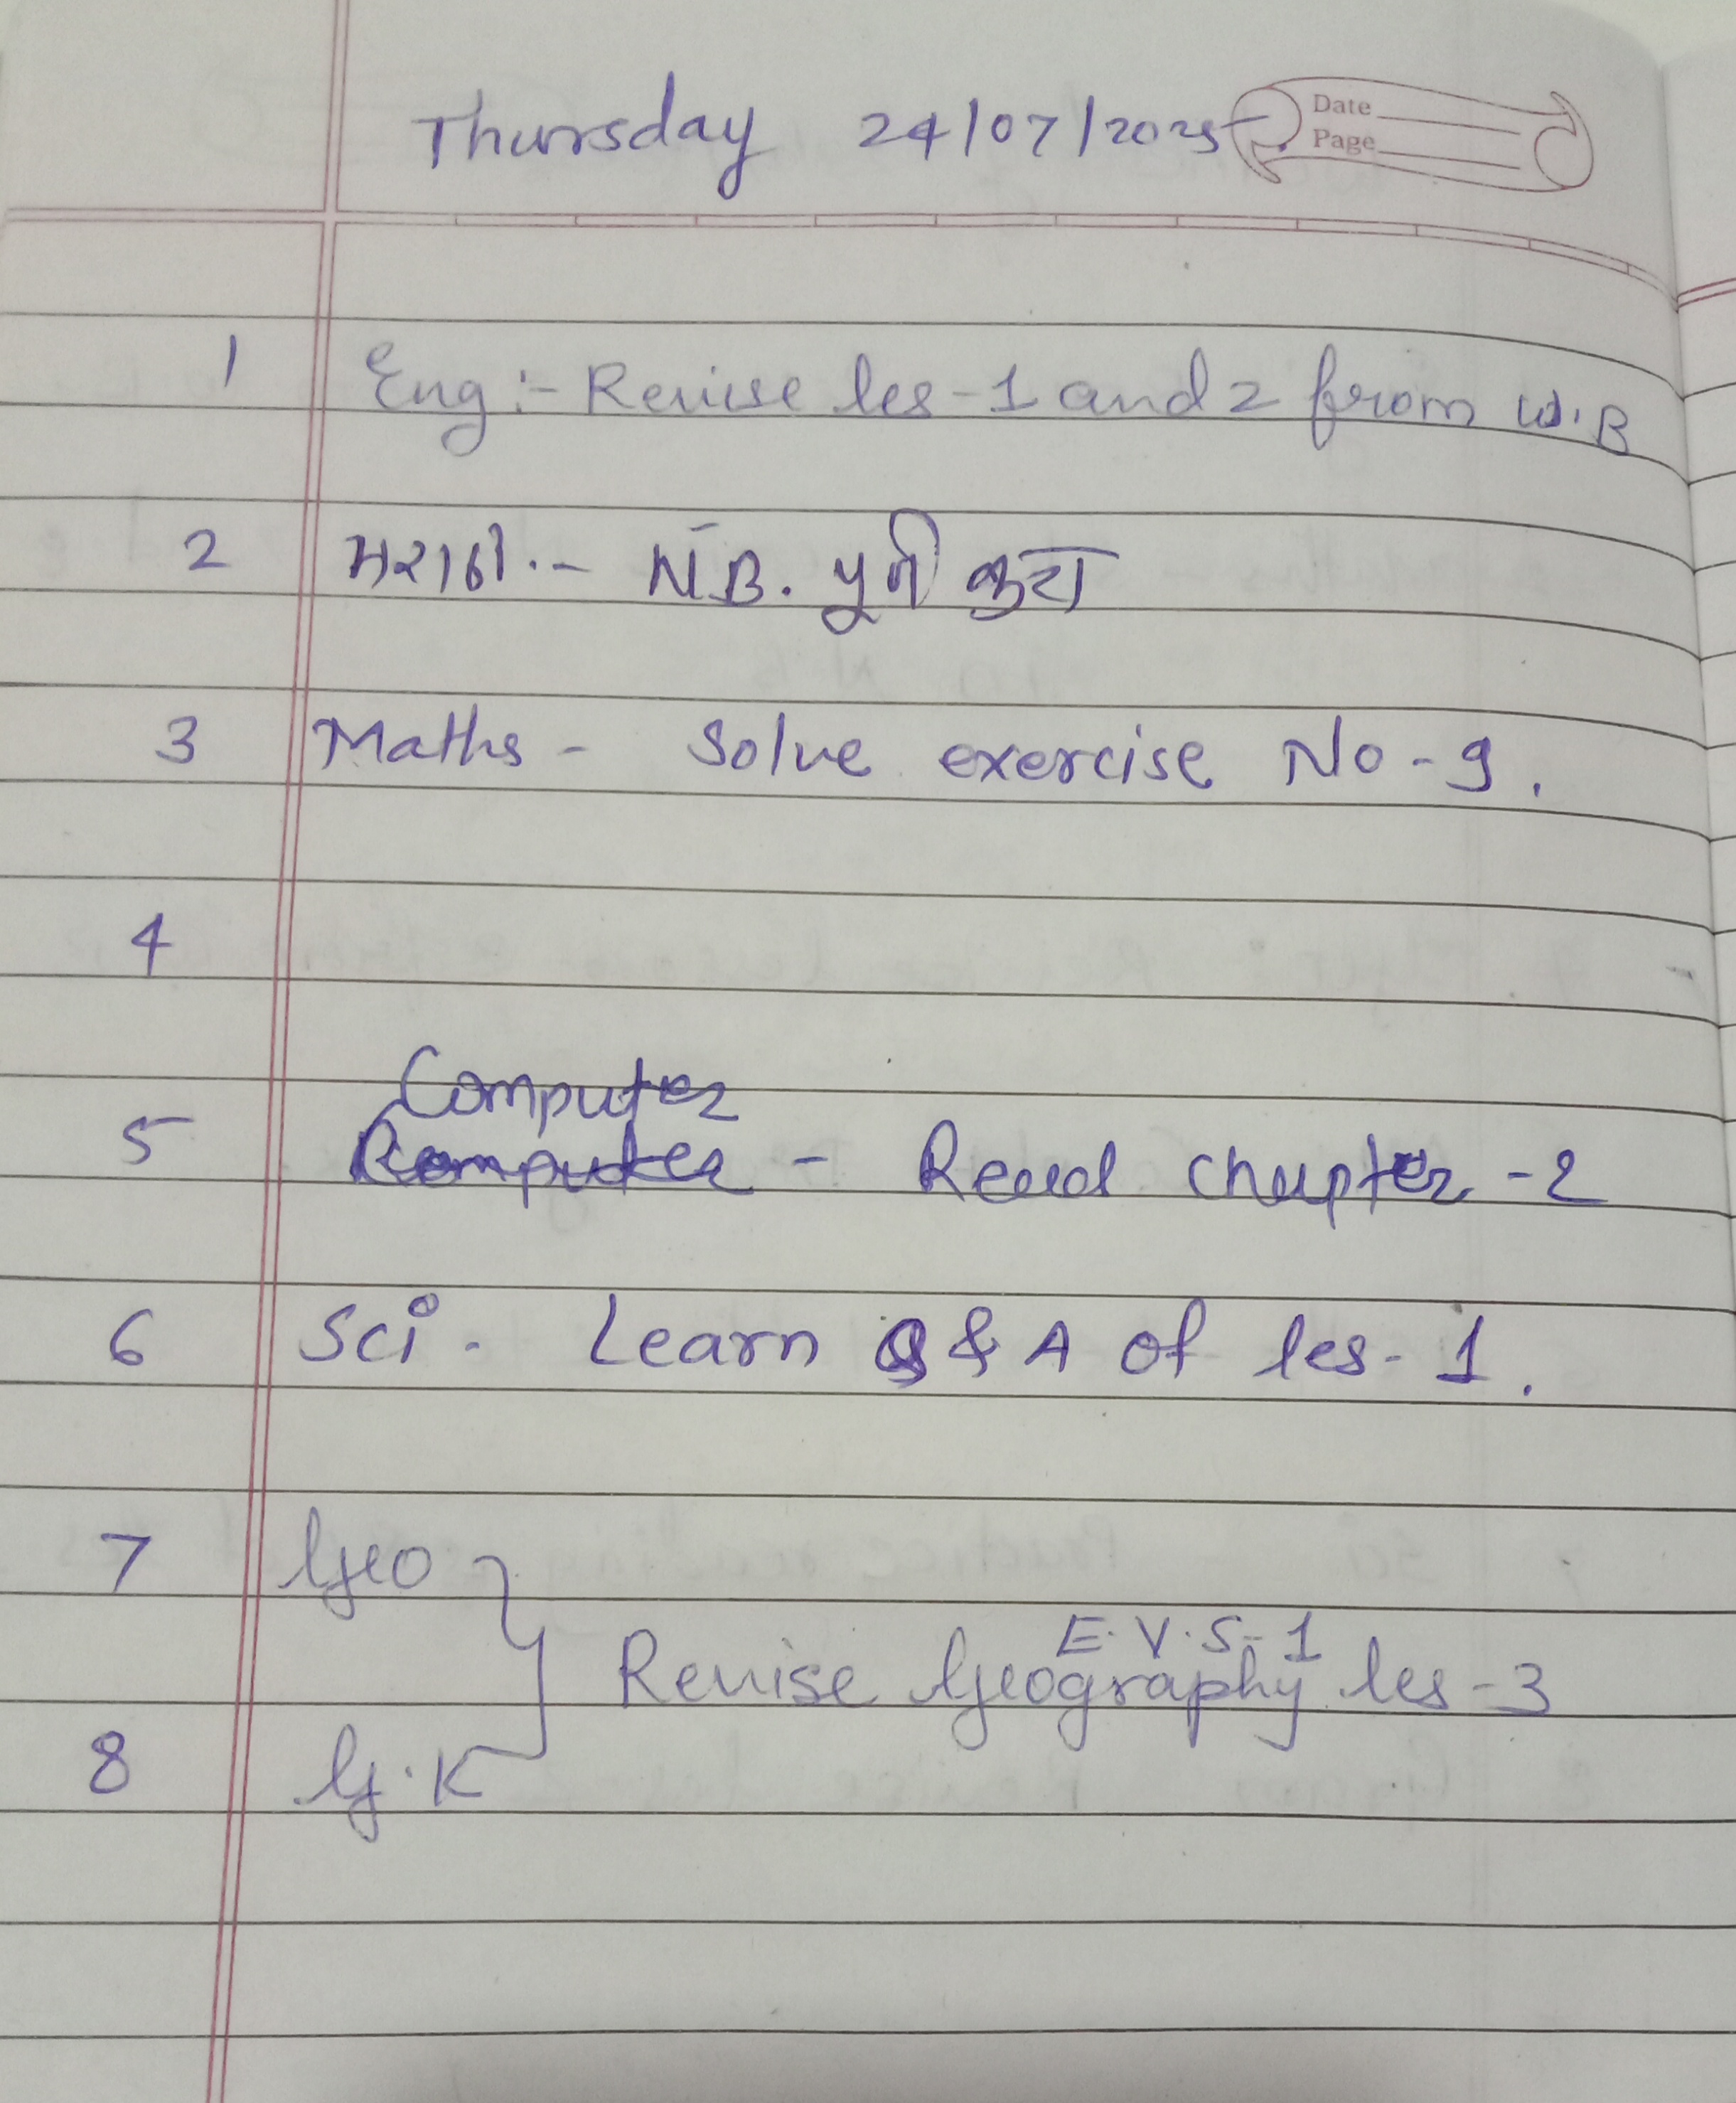 Thursday 24/07/2025
Date
Page
1 Eng :- Revise les-1 and 2 from W.B
2 मराठी.- N.B. पूर्ण करा
3 Maths - Solve exercise No-9.
4
Computer
5 Computer - Read chapter -2
6 Sci. Learn Q & A of les-1.
7 Geo
E.V.S-1
Revise Geography les-3
8 G.K